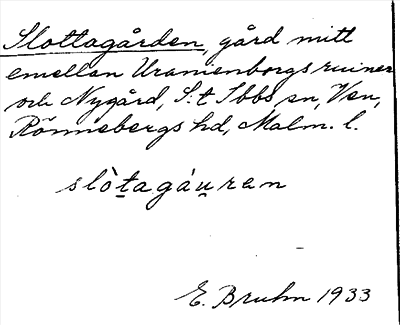 Slottagården, gård mitt
emellan Uranienborgs ruiner
och Nygård, S:t Ibbs sn, Ven,
Rönnebergs hd, Malm. l.
slòtagáu̯ren
E. Bruhn 1933